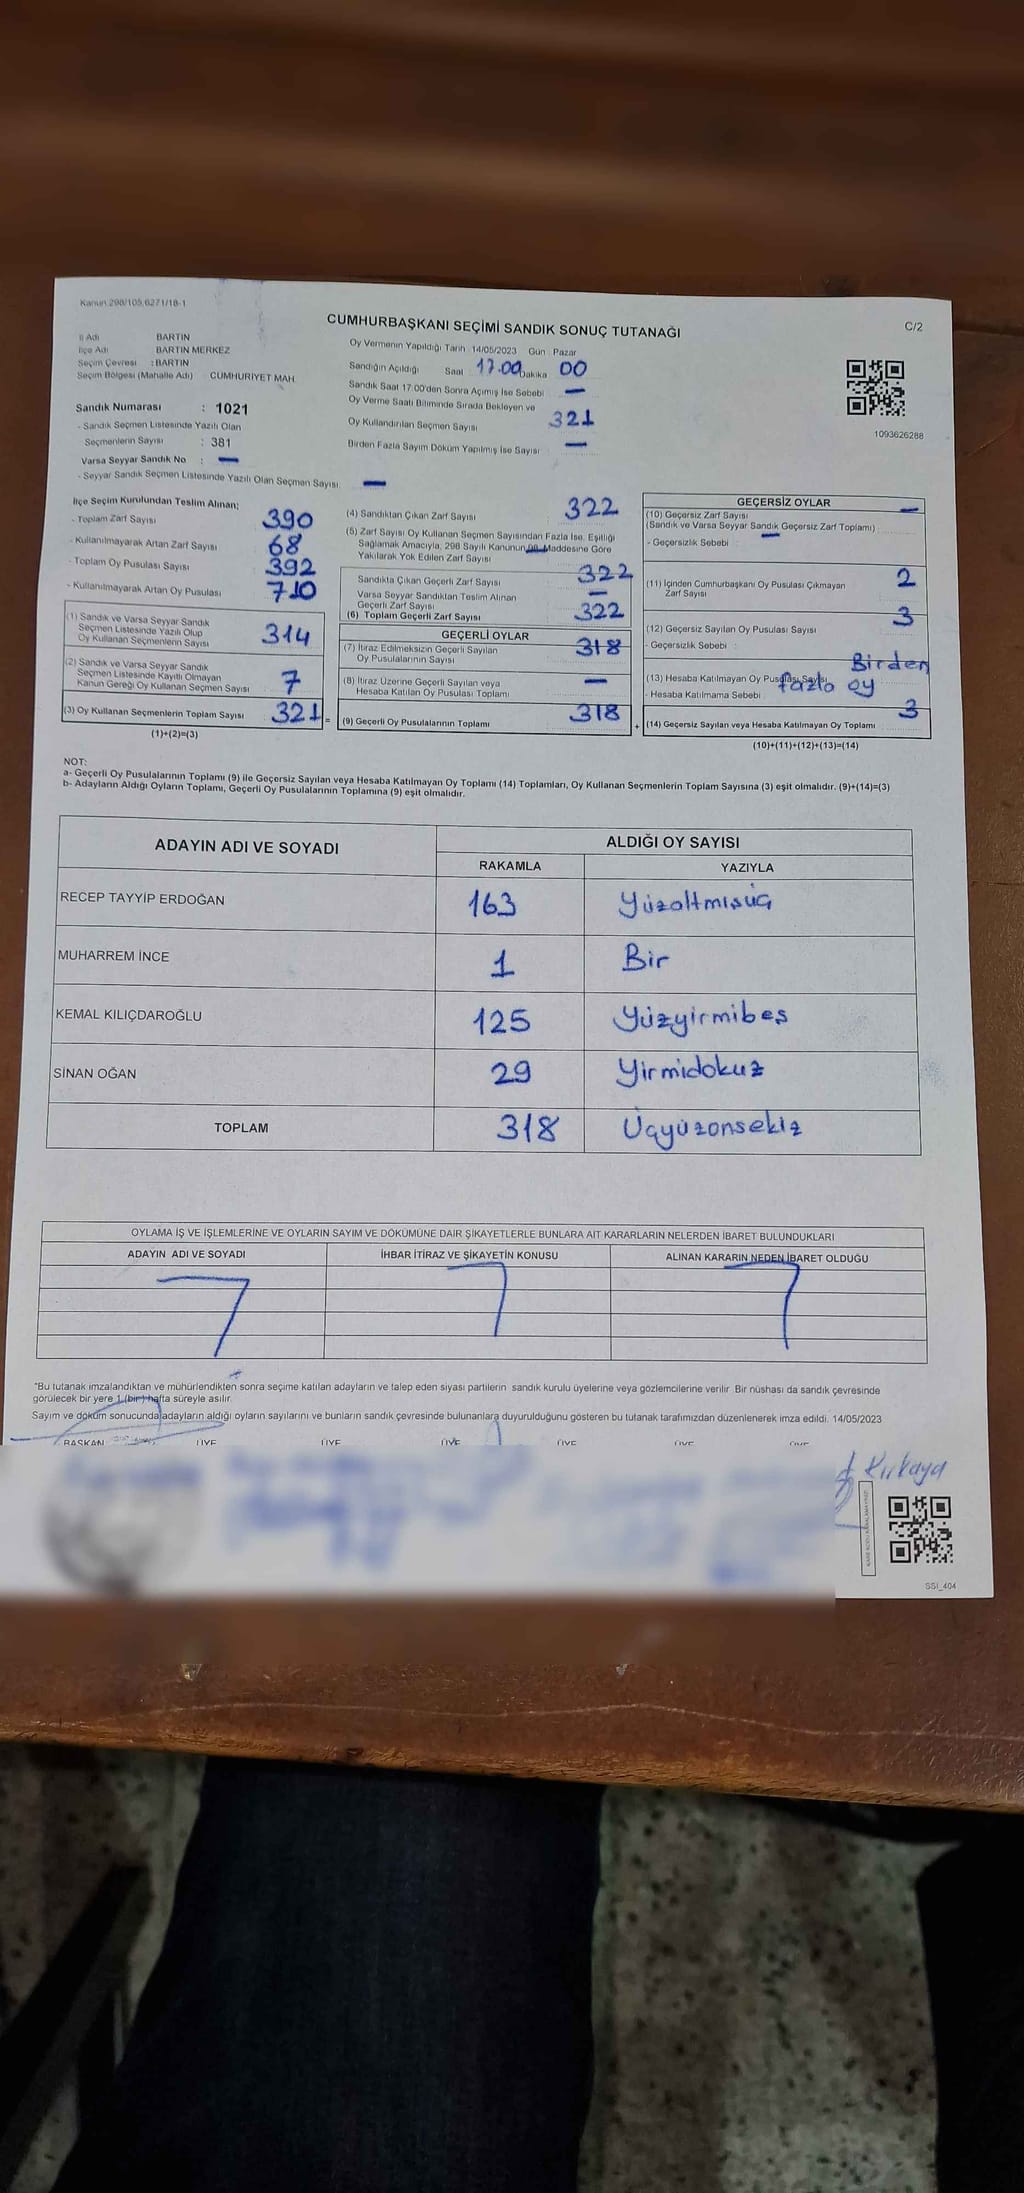 Kanun 298/105,6271/18-1
CUMHURBAŞKANI SEÇİMİ SANDIK SONUÇ TUTANAĞI
C/2
İl Adı BARTIN
İlçe Adı BARTIN MERKEZ
Seçim Çevresi : BARTIN
Seçim Bölgesi (Mahalle Adı) CUMHURİYET MAH.
Sandık Numarası : 1021
- Sandık Seçmen Listesinde Yazılı Olan
Seçmenlerin Sayısı : 381
Varsa Seyyar Sandık No : —
- Seyyar Sandık Seçmen Listesinde Yazılı Olan Seçmen Sayısı: —
Oy Vermenin Yapıldığı Tarih 14/05/2023 Gün Pazar
Sandığın Açıldığı Saat 17.00 Dakika 00
Sandık Saat 17:00'den Sonra Açımış İse Sebebi —
Oy Verme Saati Bitiminde Sırada Bekleyen ve
Oy Kullandırılan Seçmen Sayısı 321
Birden Fazla Sayım Döküm Yapılmış İse Sayısı —
1093626288
İlçe Seçim Kurulundan Teslim Alınan;
- Toplam Zarf Sayısı 390
- Kullanılmayarak Artan Zarf Sayısı 68
- Toplam Oy Pusulası Sayısı 392
- Kullanılmayarak Artan Oy Pusulası 710
(1) Sandık ve Varsa Seyyar Sandık
Seçmen Listesinde Yazılı Olup
Oy Kullanan Seçmenlerin Sayısı 314
(2) Sandık ve Varsa Seyyar Sandık
Seçmen Listesinde Kayıtlı Olmayan
Kanun Gereği Oy Kullanan Seçmen Sayısı 7
(3) Oy Kullanan Seçmenlerin Toplam Sayısı 321 =
(1)+(2)=(3)
(4) Sandıktan Çıkan Zarf Sayısı 322
(5) Zarf Sayısı Oy Kullanan Seçmen Sayısından Fazla İse, Eşitliği
Sağlamak Amacıyla, 298 Sayılı Kanunun 98. Maddesine Göre
Yakılarak Yok Edilen Zarf Sayısı —
Sandıkta Çıkan Geçerli Zarf Sayısı 322
Varsa Seyyar Sandıktan Teslim Alınan
Geçerli Zarf Sayısı —
(6) Toplam Geçerli Zarf Sayısı 322
GEÇERLİ OYLAR
(7) İtiraz Edilmeksizin Geçerli Sayılan
Oy Pusulalarının Sayısı 318
(8) İtiraz Üzerine Geçerli Sayılan veya
Hesaba Katılan Oy Pusulası Toplamı —
(9) Geçerli Oy Pusulalarının Toplamı 318 +
GEÇERSİZ OYLAR
(10) Geçersiz Zarf Sayısı —
(Sandık ve Varsa Seyyar Sandık Geçersiz Zarf Toplamı)
- Geçersizlik Sebebi : —
(11) İçinden Cumhurbaşkanı Oy Pusulası Çıkmayan
Zarf Sayısı 2
(12) Geçersiz Sayılan Oy Pusulası Sayısı 3
- Geçersizlik Sebebi : Birden
(13) Hesaba Katılmayan Oy Pusulası Sayısı
- Hesaba Katılmama Sebebi : fazla oy
(14) Geçersiz Sayılan veya Hesaba Katılmayan Oy Toplamı 3
(10)+(11)+(12)+(13)=(14)
NOT:
a- Geçerli Oy Pusulalarının Toplamı (9) ile Geçersiz Sayılan veya Hesaba Katılmayan Oy Toplamı (14) Toplamları, Oy Kullanan Seçmenlerin Toplam Sayısına (3) eşit olmalıdır. (9)+(14)=(3)
b- Adayların Aldığı Oyların Toplamı, Geçerli Oy Pusulalarının Toplamına (9) eşit olmalıdır.
ADAYIN ADI VE SOYADI ALDIĞI OY SAYISI
RAKAMLA YAZIYLA
RECEP TAYYİP ERDOĞAN 163 Yüzaltmışüç
MUHARREM İNCE 1 Bir
KEMAL KILIÇDAROĞLU 125 Yüzyirmibeş
SİNAN OĞAN 29 Yirmidokuz
TOPLAM 318 Üçyüzonsekiz
OYLAMA İŞ VE İŞLEMLERİNE VE OYLARIN SAYIM VE DÖKÜMÜNE DAİR ŞİKAYETLERLE BUNLARA AİT KARARLARIN NELERDEN İBARET BULUNDUKLARI
ADAYIN ADI VE SOYADI İHBAR İTİRAZ VE ŞİKAYETİN KONUSU ALINAN KARARIN NEDEN İBARET OLDUĞU
*Bu tutanak imzalandıktan ve mühürlendikten sonra seçime katılan adayların ve talep eden siyasi partilerin sandık kurulu üyelerine veya gözlemcilerine verilir. Bir nüshası da sandık çevresinde
görülecek bir yere 1 (bir) hafta süreyle asılır.
Sayım ve döküm sonucunda adayların aldığı oyların sayılarını ve bunların sandık çevresinde bulunanlara duyurulduğunu gösteren bu tutanak tarafımızdan düzenlenerek imza edildi. 14/05/2023
BAŞKAN ÜYE ÜYE ÜYE ÜYE ÜYE ÜYE
Kırkaya
SSI_404